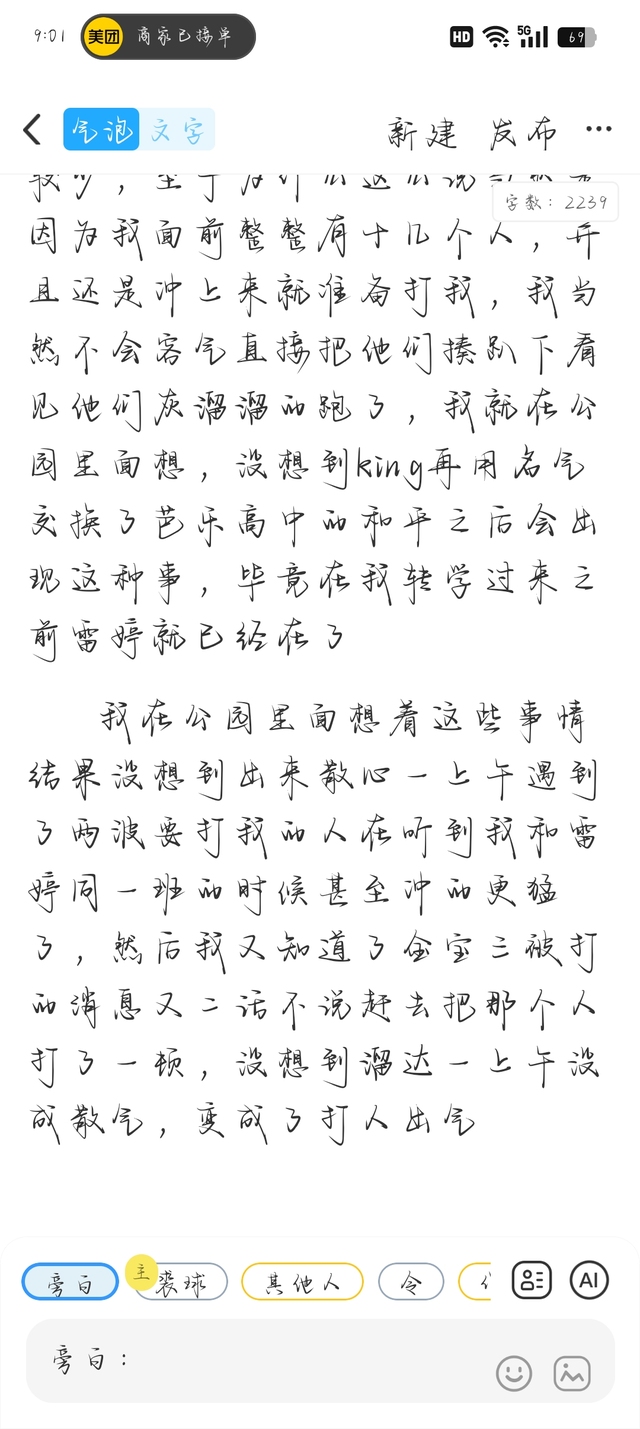 9:01 美团 商家已接单 HD 5G 69
气泡 文字 新建 发布 ...
字数：2239
因为我面前整整有十几个人，并
且还是冲上来就准备打我，我当
然不会客气直接把他们揍趴下看
见他们灰溜溜的跑了，我就在公
园里面想，没想到king再用名气
交换了芭乐高中的和平之后会出
现这种事，毕竟在我转学过来之
前雷婷就已经在了
我在公园里面想着这些事情
结果没想到出来散心一上午遇到
了两波要打我的人在听到我和雷
婷同一班的时候甚至冲的更猛
了，然后我又知道了金宝三被打
的消息又二话不说赶去把那个人
打了一顿，没想到溜达一上午没
成散气，变成了打人出气
旁白 主 裘球 其他人 令 AI
旁白：